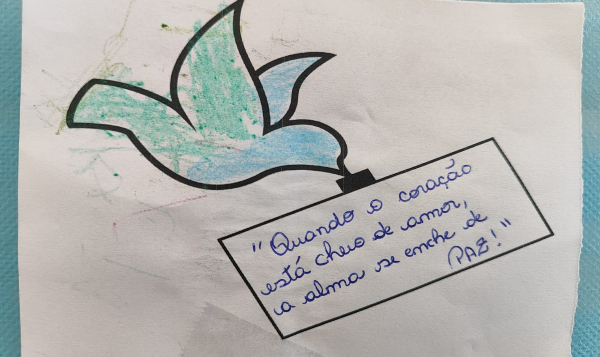 "Quando o coração
está cheio de amor,
a alma se enche de
PAZ!"